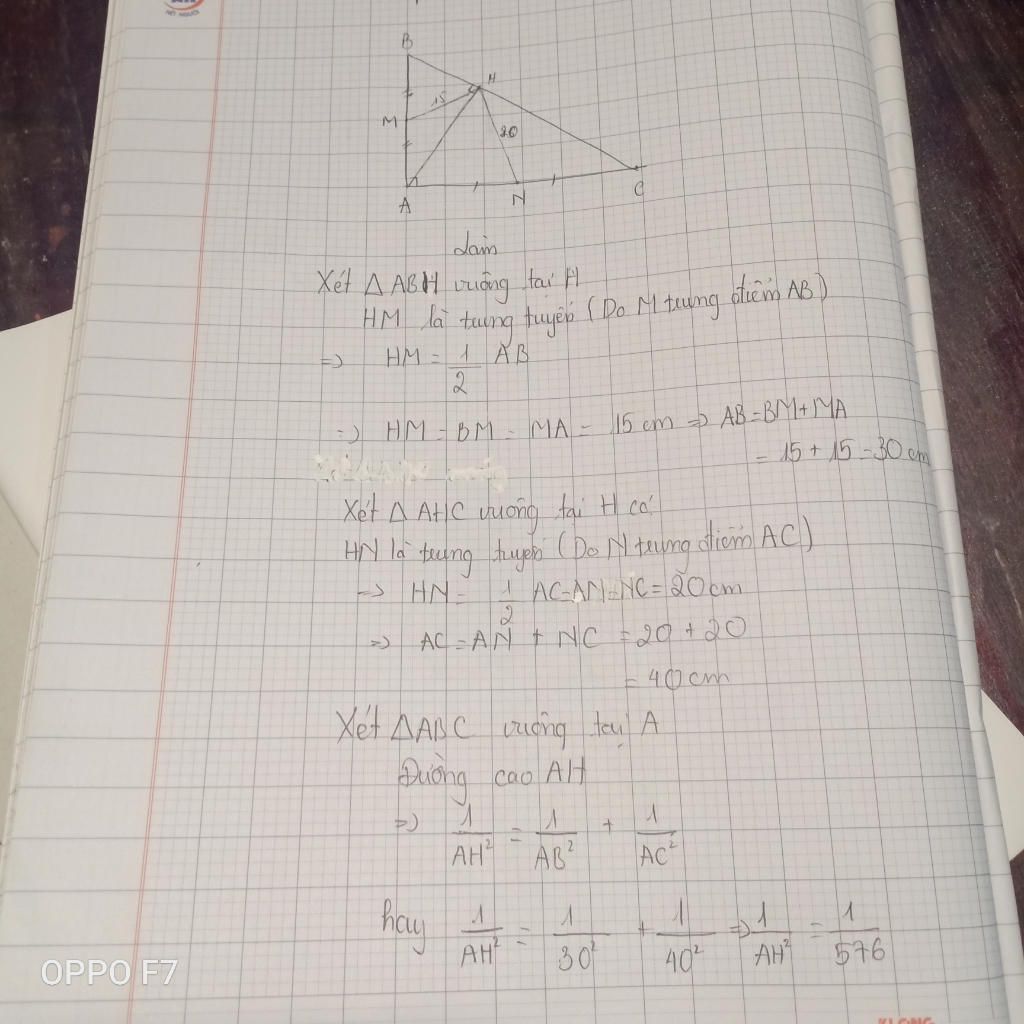 NÉT NGƯỜI
B
H
15
M
20
A
N
C
Làm
Xét △ ABH vuông tại H
HM là trung tuyến (Do M trung điểm AB)
=> HM = 1/2 AB
=> HM = BM = MA = 15 cm => AB = BM + MA
= 15 + 15 = 30 cm
Xét △ AHC vuông tại H có
HN là trung tuyến (Do N trung điểm AC)
=> HN = 1/2 AC = AN = NC = 20 cm
=> AC = AN + NC = 20 + 20
= 40 cm
Xét △ABC vuông tại A
Đường cao AH
=> 1/AH² = 1/AB² + 1/AC²
hay 1/AH² = 1/30² + 1/40² => 1/AH² = 1/576
OPPO F7
KLONG